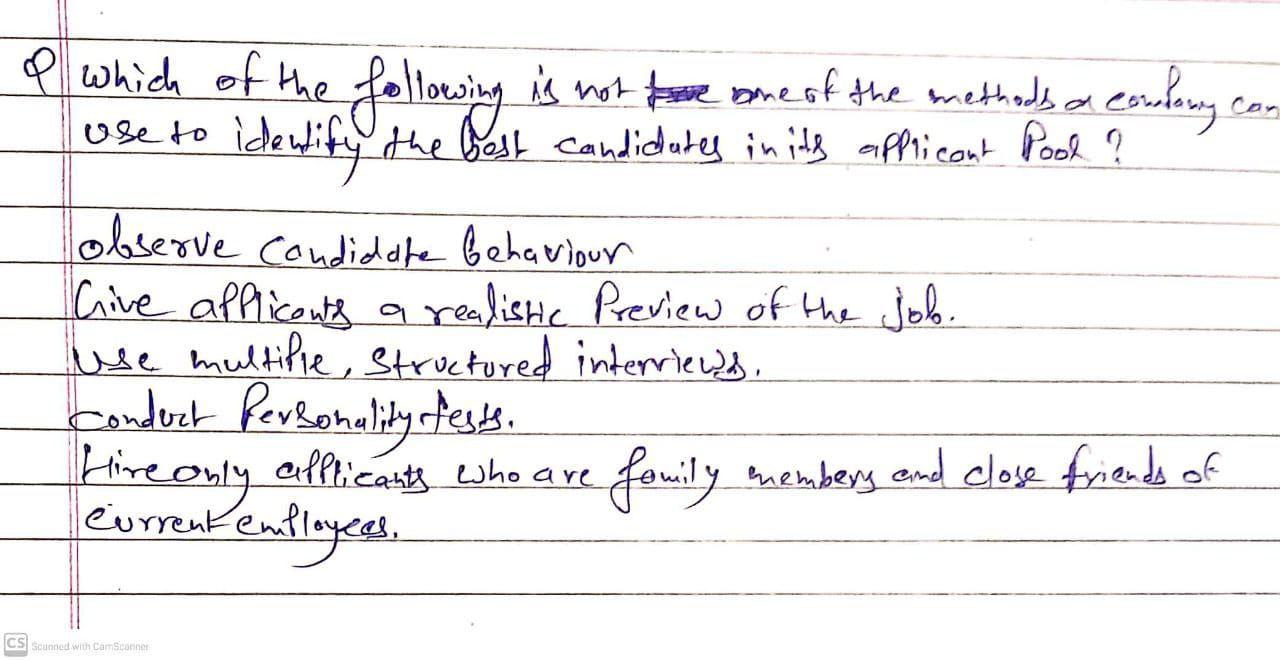 Q which of the following is not one of the methods a company can
use to identify the best candidates in its applicant Pool ?
observe candidate behaviour
Give applicants a realistic Preview of the job.
Use multiple, structured interviews.
conduct Personality tests.
Hire only applicants who are family members and close friends of
current employees.
CS Scanned with CamScanner